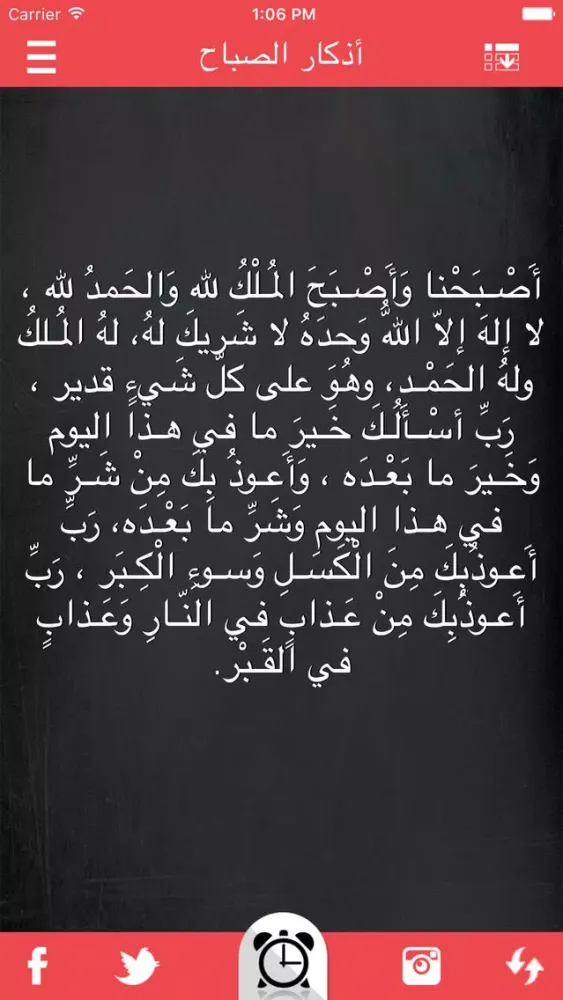 Carrier 1:06 PM
أذكار الصباح
أَصْـبَحْنا وَأَصْـبَحَ المُـلْكُ لله وَالحَمدُ لله ،
لا إلهَ إلاّ اللّهُ وَحدَهُ لا شَريكَ لهُ، لهُ المُـلكُ
ولهُ الحَمْـد، وهُوَ على كلّ شَيءٍ قدير ،
رَبِّ أسْـأَلُـكَ خَـيرَ ما في هـذا اليوم
وَخَـيرَ ما بَعْـدَه ، وَأَعـوذُ بِكَ مِنْ شَـرِّ ما
في هـذا اليوم وَشَرِّ ما بَعْـدَه، رَبِّ
أَعـوذُبِكَ مِنَ الْكَسَـلِ وَسـوءِ الْكِـبَر ، رَبِّ
أَعـوذُبِكَ مِنْ عَـذابٍ في النّـارِ وَعَـذابٍ
في القَـبْر.